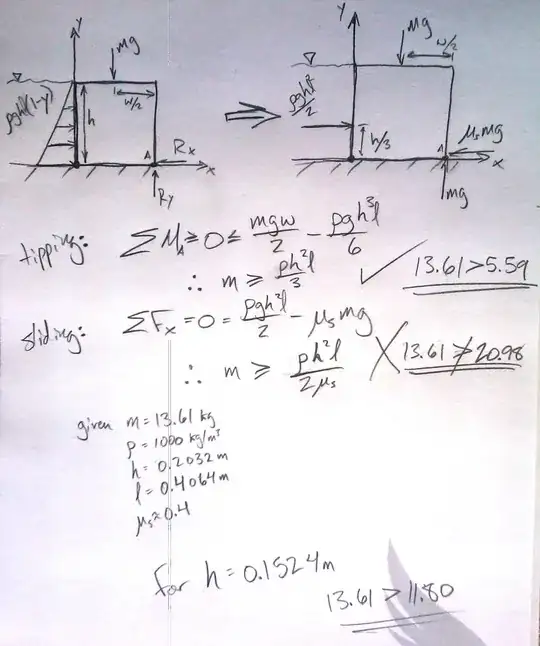 Y
Mg
ρghl(1-y)
h
w/2
A
Rx
x
Ry
Y
Mg
w/2
ρgh²l/2
h/3
A
μsmg
x
mg
tipping: ΣM_A ≥ 0 ≤ mgw/2 - ρgh³l/6
∴ m ≥ ρh²l/3 ✓ 13.61 > 5.59
sliding: ΣFx = 0 = ρgh²l/2 - μs mg
∴ m ≥ ρh²l/2μs X 13.61 ≯ 20.98
given m = 13.61 kg
ρ = 1000 kg/m³
h = 0.2032 m
l = 0.4064 m
μs ≈ 0.4
for h = 0.1524 m
13.61 > 11.80